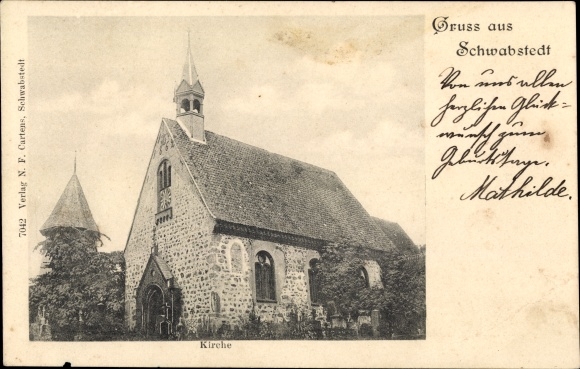 Gruss aus
Schwabstedt
Von uns allen
herzlichen Glück=
wunsch zum
Geburtstage.
Mathilde.
7042 Verlag N. F. Cartens, Schwabstedt
Kirche